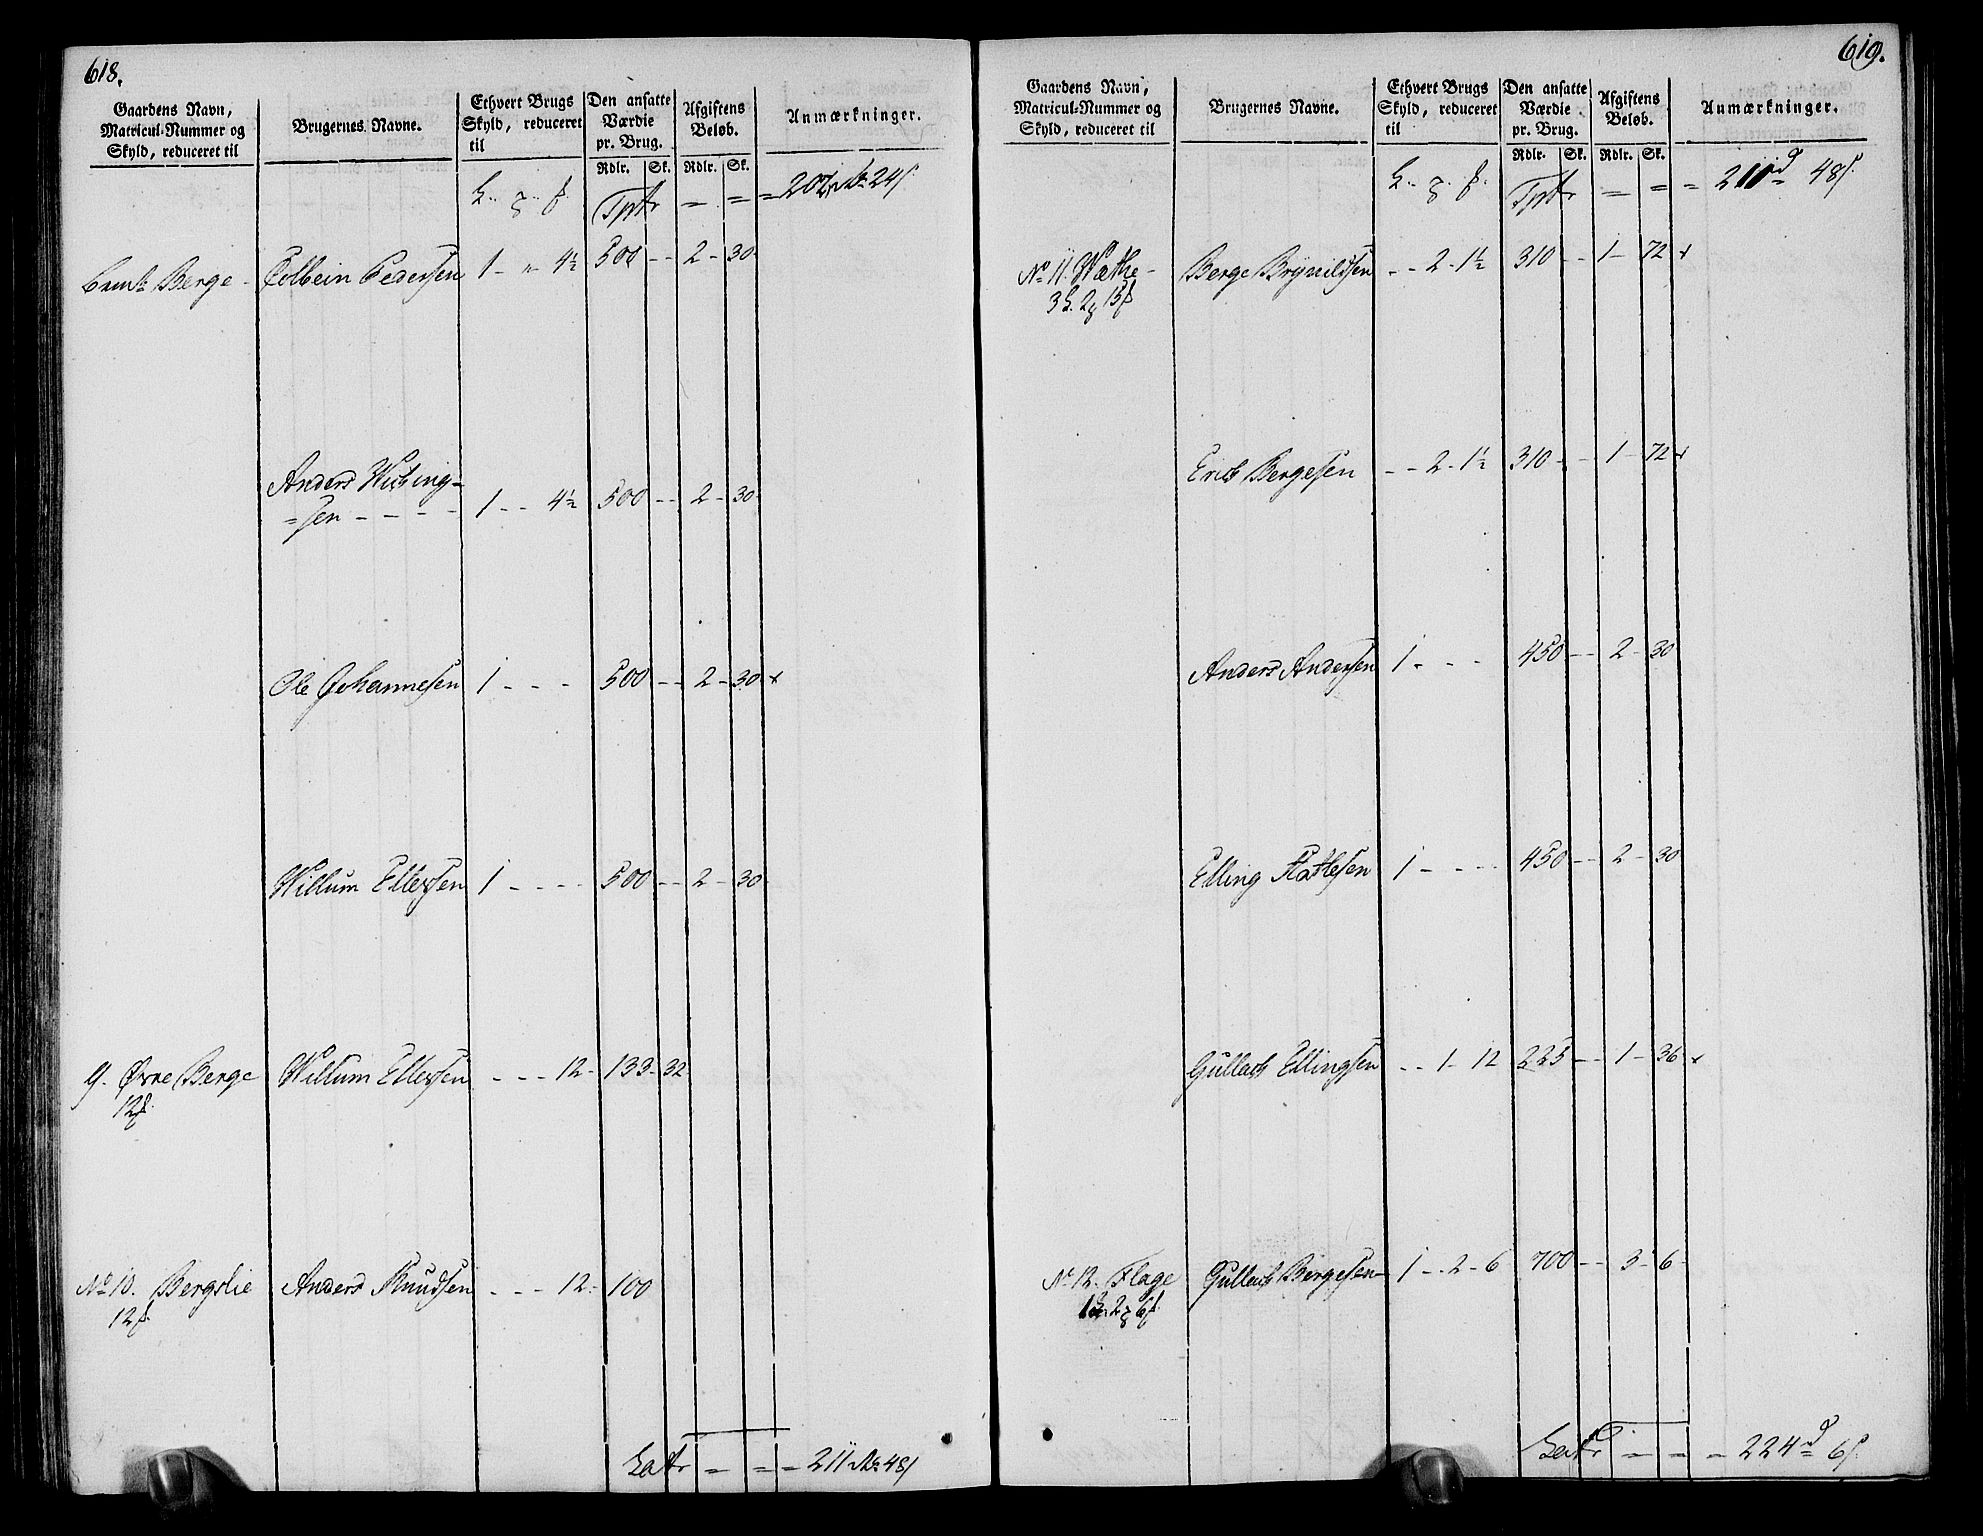 618.
Gaardens Navn,
Matricul-Nummer og
Skyld, reduceret til
Brugernes Navne.
Ethvert Brugs
Skyld, reduceret
til
Den ansatte
Værdie
pr. Brug.
Rdlr. Sk.
Afgiftens
Beløb.
Rdlr. Sk.
Anmærkninger.
Tpt = = = 202 24 s
Berge - Colbein Pedersen 1 - " - 4½ 500 - - 2 - 30
Anders Wiching=
=sen - - - - 1 - - 4½ 500 - - 2 - 30
Ole Johannesen 1 - - - 500 - - 2 - 30 +
Willum Ellefsen 1 - - - - 500 - - 2 - 30
9. Øvre Berge Willum Ellefsen - - - 12 - 133 - 32
12 f.
No 10. Bergslie Anders Knudsen - - - 12 - 100
12 f.
Latr = = = 211 48 s
619.
Gaardens Navn,
Matricul-Nummer og
Skyld, reduceret til
Brugernes Navne.
Ethvert Brugs
Skyld, reduceret
til
Den ansatte
Værdie
pr. Brug.
Rdlr. Sk.
Afgiftens
Beløb.
Rdlr. Sk.
Anmærkninger.
Tpt = = = 211 48 s
No 11. Wathe - Berge Brynildsen - - 2 - 1½ 310 - - 1 - 72 +
Erich Bergesen - - 2 - 1½ 310 - - 1 - 72 +
Anders Andersen 1 - - - 450 - - 2 - 30
Elling 1 - - - - 450 - - 2 - 30
Gullach Ellingsen - - 1 - 12 225 - - 1 - 36 +
No 12. Flage Gullach Bergesen - 1 - - 2 - 6 700 - - 3 - 6
Latr = = = 224 6 s